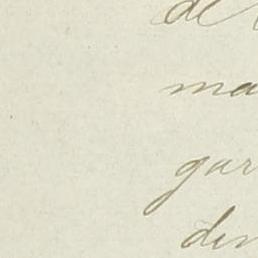 de
ma
gar
den